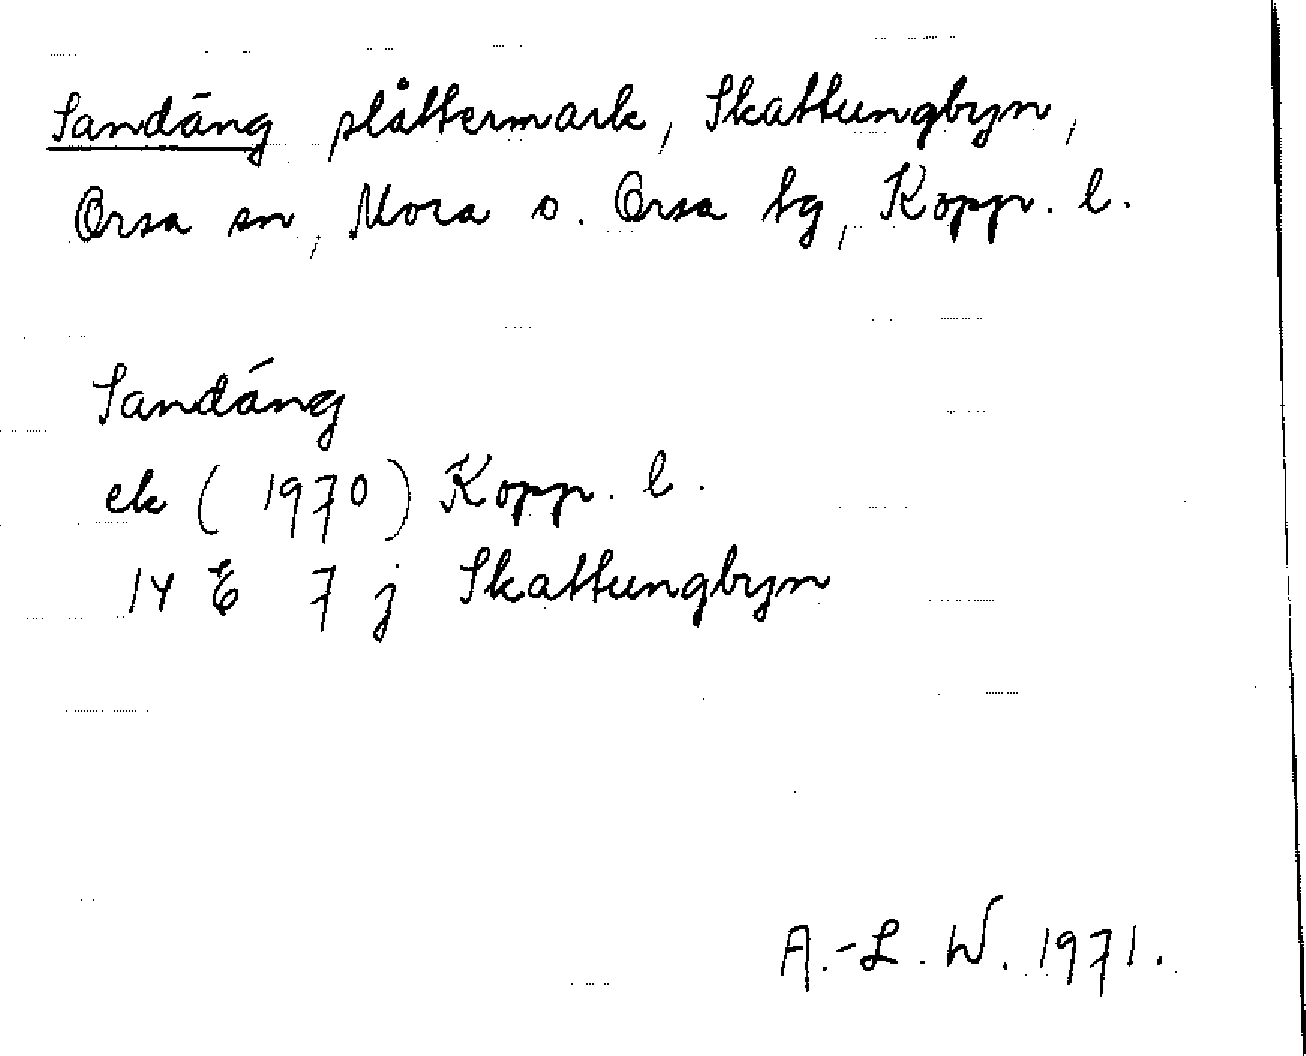 Sandäng slåttermark, Skattungbyn,
Orsa sn, Mora o. Orsa tg, Kopp. l.
Sandäng
ek (1970) Kopp. l.
14 E 7 j Skattungbyn
A.-L. W. 1971.